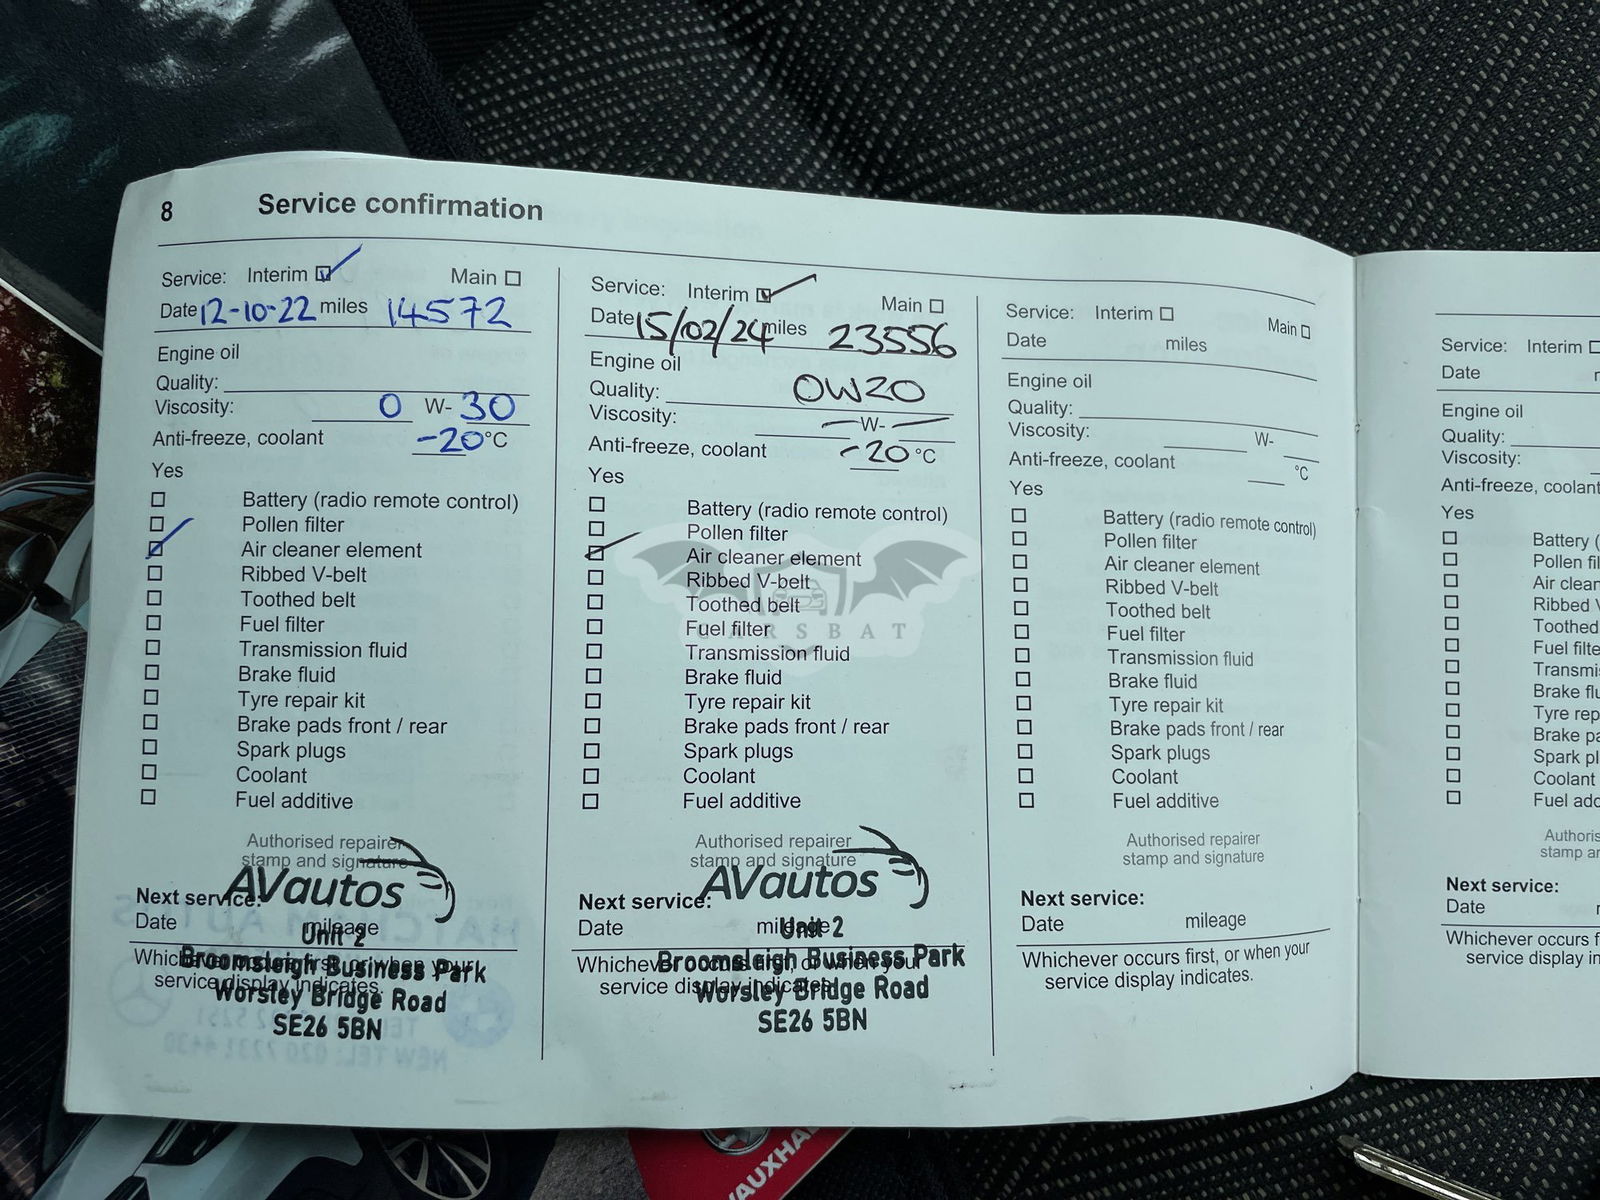 8 Service confirmation
Service: Interim Main
Date 12-10-22 miles 14572
Engine oil
Quality:
Viscosity: 0 W- 30
Anti-freeze, coolant -20 °C
Yes
Battery (radio remote control)
Pollen filter
Air cleaner element
Ribbed V-belt
Toothed belt
Fuel filter
Transmission fluid
Brake fluid
Tyre repair kit
Brake pads front / rear
Spark plugs
Coolant
Fuel additive
Authorised repairer
stamp and signature
AVautos
Next service:
Date mileage
Unit 2
Whichever occurs first, or when your
Broomsleigh Business Park
service display indicates.
Worsley Bridge Road
SE26 5BN
Service: Interim Main
Date 15/02/24 miles 23556
Engine oil
Quality: 0W20
Viscosity: W-
Anti-freeze, coolant -20 °C
Yes
Battery (radio remote control)
Pollen filter
Air cleaner element
Ribbed V-belt
Toothed belt
Fuel filter
CARSBAT
Transmission fluid
Brake fluid
Tyre repair kit
Brake pads front / rear
Spark plugs
Coolant
Fuel additive
Authorised repairer
stamp and signature
AVautos
Next service:
Date mileage
Unit 2
Whichever occurs first, or when your
Broomsleigh Business Park
service display indicates.
Worsley Bridge Road
SE26 5BN
Service: Interim Main
Date miles
Engine oil
Quality:
Viscosity: W-
Anti-freeze, coolant °C
Yes
Battery (radio remote control)
Pollen filter
Air cleaner element
Ribbed V-belt
Toothed belt
Fuel filter
Transmission fluid
Brake fluid
Tyre repair kit
Brake pads front / rear
Spark plugs
Coolant
Fuel additive
Authorised repairer
stamp and signature
Next service:
Date mileage
Whichever occurs first, or when your
service display indicates.
Service: Interim
Date
Engine oil
Quality:
Viscosity:
Anti-freeze, coolant
Yes
Battery (
Pollen fil
Air clean
Ribbed V
Toothed
Fuel filte
Transmis
Brake flu
Tyre rep
Brake pa
Spark pl
Coolant
Fuel add
Authoris
stamp ar
Next service:
Date
Whichever occurs f
service display in
VAUXHA